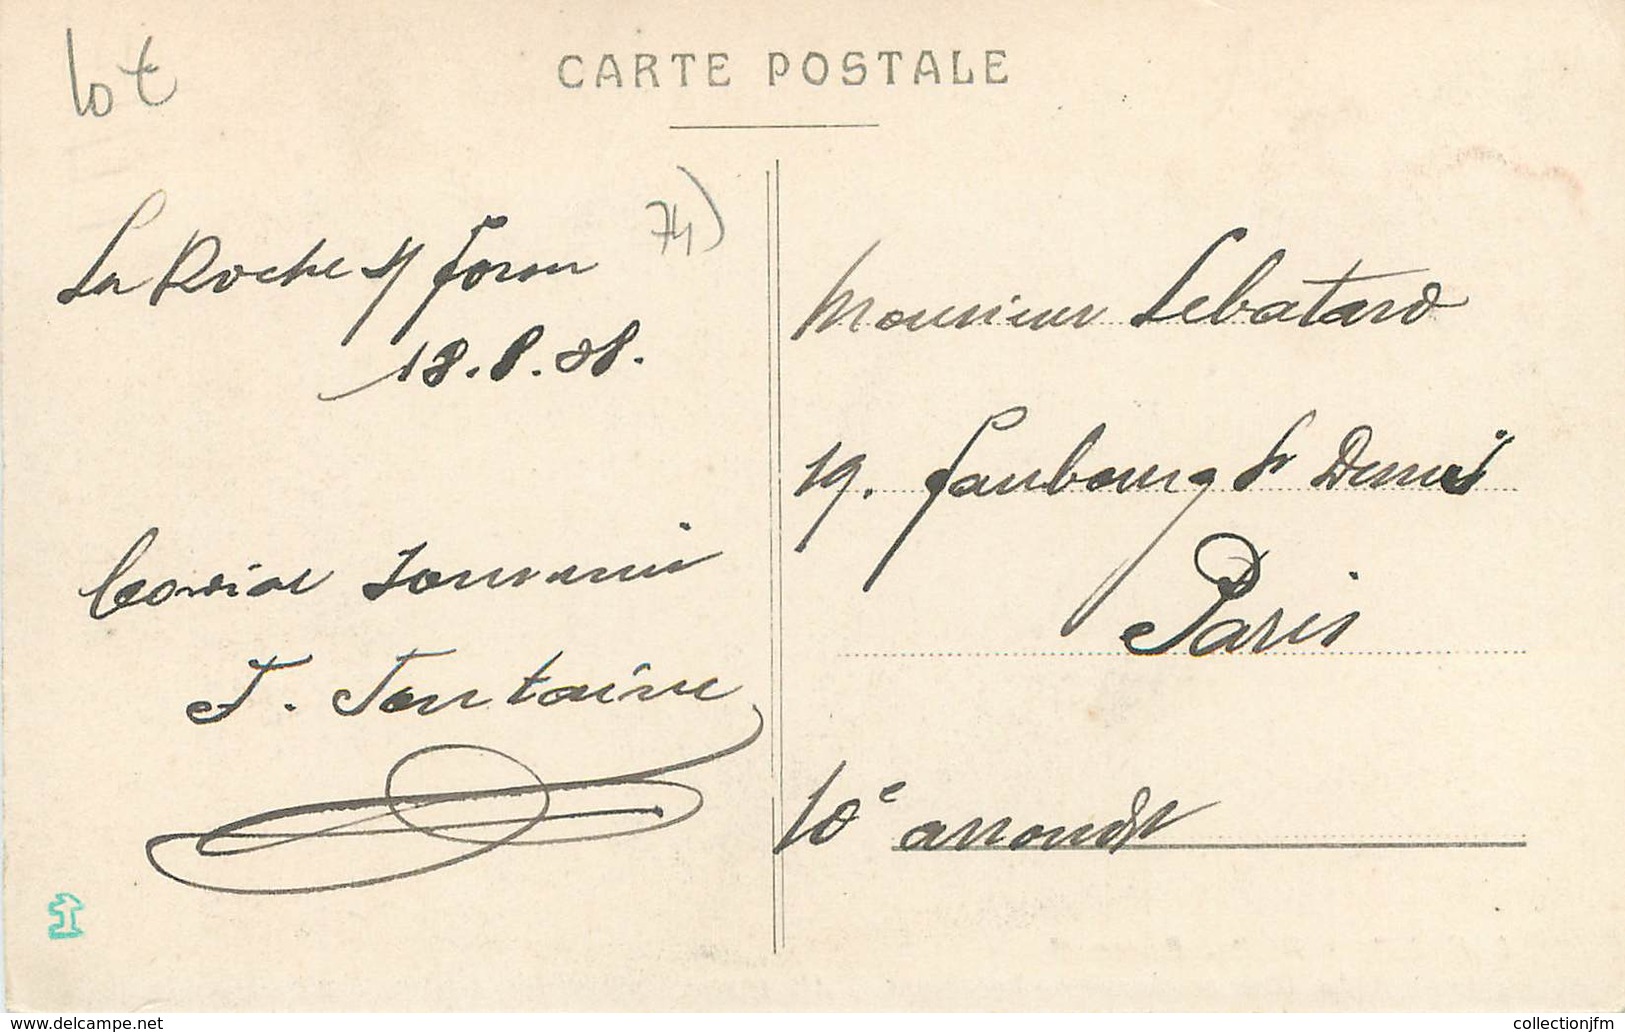 lot
CARTE POSTALE
74)
La Roche s/ foron
18.8.38.
Cordial souvenir
F. Fontaine
Monsieur Lebatard
19. faubourg St Denis
Paris
10e arrondt
www.delcampe.net
collectionjfm